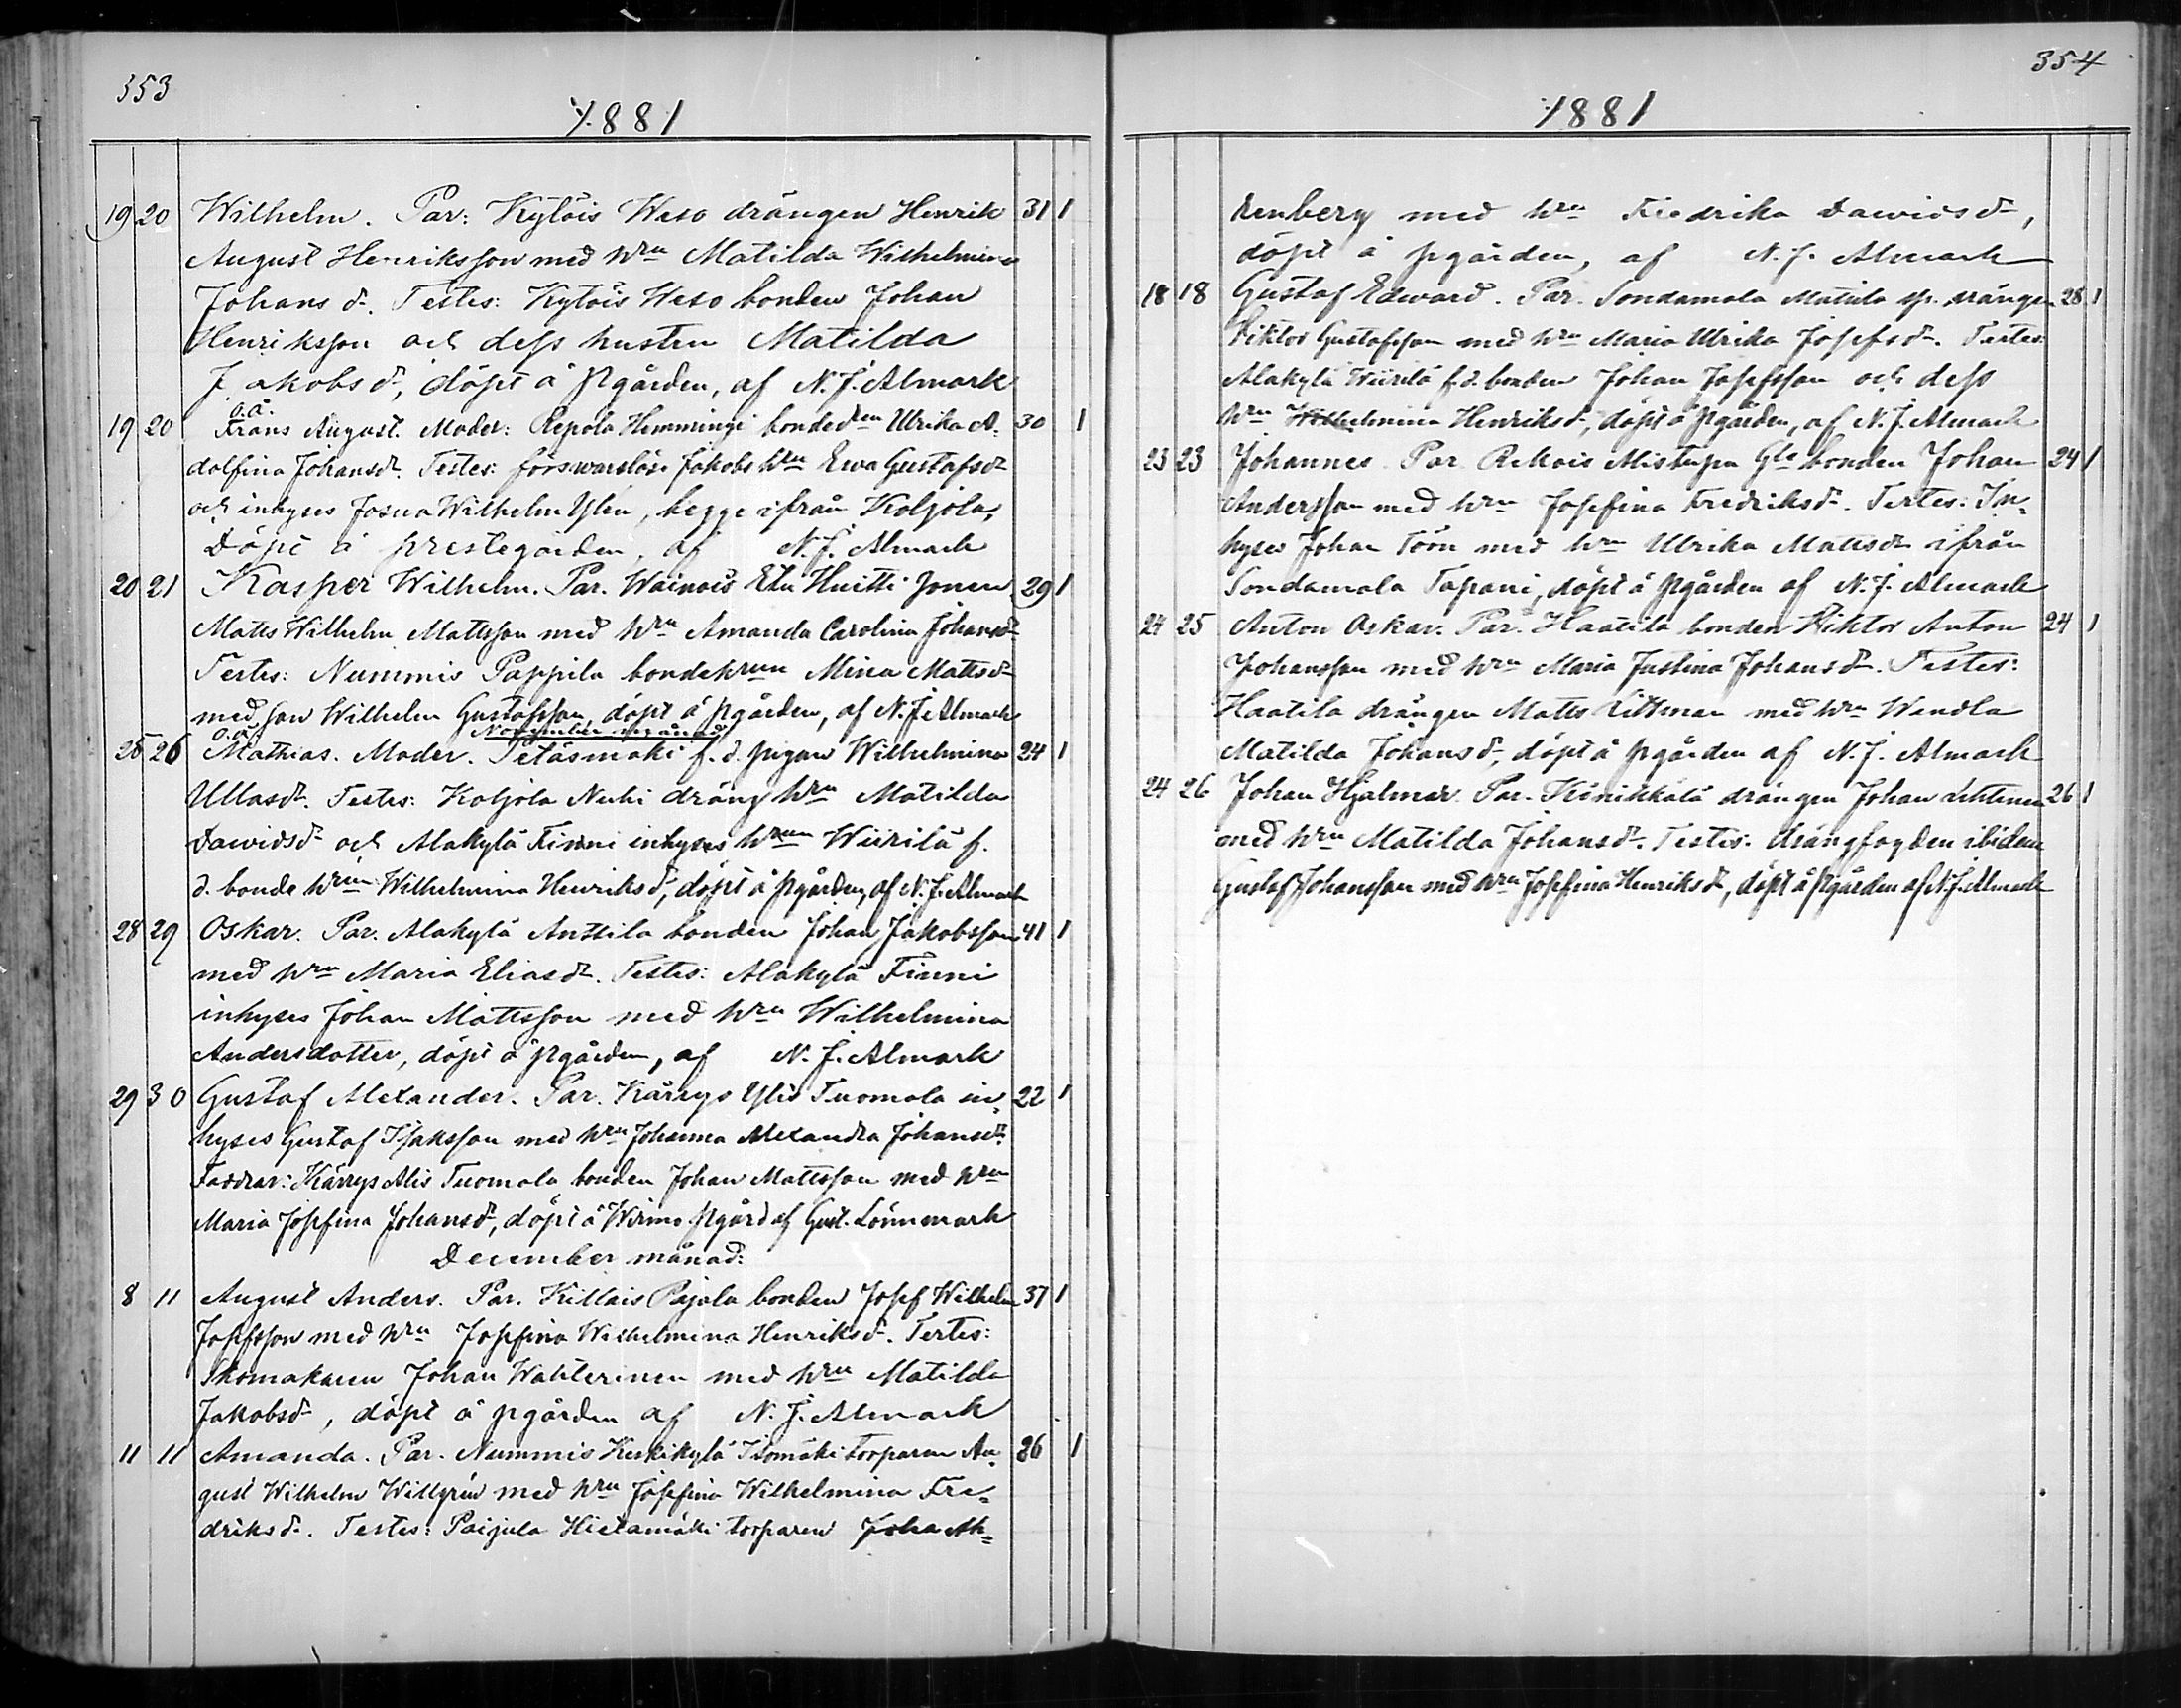 353
1881
19 20 Wilhelm. Par: Kylöis Weso drängen Henrik 31 1
August Henriksson med hrn Matilda Wilhelmina
Johansdr. Testes: Kylöis Weso bonden Johan
Henriksson och dess hustru Matilda
Jakobsdr, döpt å pgården, af N. J. Almark
o.ä.
19 20 Frans August. Moder: Repola Hemmingi bondedrn Ulrika A= 30 1
dolfina Johansdr. Testes: förswarslöse Jakobs hrn Ewa Gustafsdr
och inhyses Josua Wilhelm Ylén, begge ifrån Koljola,
Döpt å prestegården, af N. J. Almark
20 21 Kasper Wilhelm. Par. Wainois Huitti 29 1
Matts Wilhelm Mattsson med hrn Amanda Carolina Johansdr
Testes: Nummis Pappila bondehrun Mina Mattsdr
med son Wilhelm Gustafsson, döpt å pgården, af N. J. Almark
o.ä. November månad
25 26 Mathias. Moder. Petäsmäki f. d. pigan Wilhelmina 24 1
Ullasdr. Testes: Koljola Nuhi dräng hrn Matilda
Dawidsdr och Alakylä Finni inhyses hrun Wiirilä f.
d. bonde hrun Wilhelmina Henriksdr, döpt å pgården, af N. J. Almark
28 29 Oskar. Par. Alakylä Anttila bonden Johan Jakobsson 41 1
med hrn Maria Eliasdr. Testes: Alakylä Finni
inhyses Johan Mattsson med hrn Wilhelmina
Andersdotter, döpt å pgården, af N. J. Almark
29 30 Gustaf Alexander. Par. Kärrys Ylis Tuomola in= 22 1
hyses Gustaf Isaksson med hrn Johanna Alexandra Johansdr.
Faddrar: Kärrys Alis Tuomola bonden Johan Mattsson med hrn
Maria Josefina Johansdr, döpt å Wirmo pgård af Gust. Lönnmark
December månad:
8 11 August Anders. Par. Killais Pajala bonden Josef Wilhelm 37 1
Josefsson med hrn Josefina Wilhelmina Henriksdr. Testes:
Skomakaren Johan Wahterinen med hrn Matilda
Jakobsdr, döpt å pgården af N. J. Almark
11 11 Amanda. Par. Nummis Keskikylä Isomäki torparen Au= 26 1
gust Wilhelm Willgrén med hrn Josefina Wilhelmina Fre=
driksdr. Testes: Paijula Hietamäki torparen Joha Ah=
354
1881
renberg med hrn Fredrika Dawidsdr,
döpt å pgården, af N. J. Almark
18 18 Gustaf Edward. Par. Sondamala Mattila drängen 28 1
Viktor Gustafsson med hrn Maria Ulrika Josefsdr. Testes:
Alakylä Wiirilä f. d. bonden Johan Josefsson och dess
hrn Wilhelmina Henriksdr, döpt å pgården, af N. J. Almark
23 23 Johannes. Par. Rekois Mistupa Gle bonden Johan 24 1
Andersson med hrn Josefina Fredriksdr. Testes: In=
hyses Johan Töön med hrn Ulrika Mattsdr ifrån
Sondamala Tapani, döpt å pgården af N. J. Almark
24 25 Anton Oskar. Par. Haatila bonden Viktor Anton 24 1
Johansson med hrn Maria Justina Johansdr. Testes:
Haatila drängen Matts Littman med hrn Wendla
Matilda Johansdr, döpt å pgården af N. J. Almark
24 26 Johan Hjalmar. Par. Kinikkalä drängen Johan Lehtinen 26 1
med hrn Matilda Johansdr. Testes: drängfogden ibidem
Gustaf Johansson med hrn Josefina Henriksdr, döpt å pgården af N. J. Almark